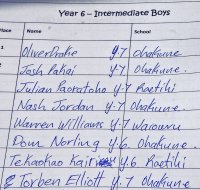 Year 6 - Intermediate Boys
Place Name School
1 Oliver Drake y.7 Ohakune
Josh Pakai y.7 Ohakune.
Julian Paoratoho y.7 Raetihi
Nash Jordan y.7 Ohakune.
Warren Williams y.7 Waiouru
Dom Norling y.6 Ohakune.
Tekaokao y.6 Raetihi
Torben Elliott y.7 Ohakune